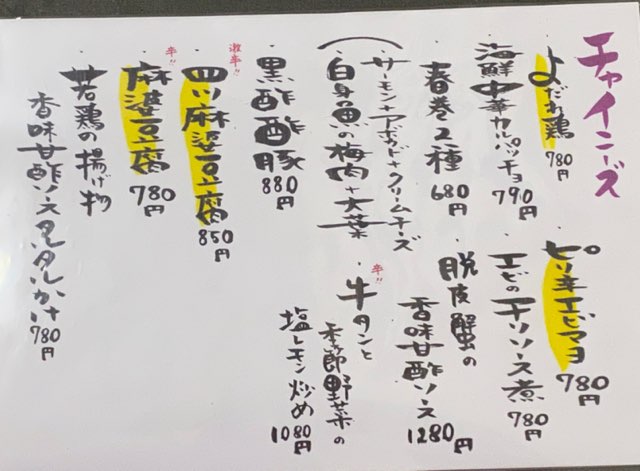 チャイニーズ
・よだれ鶏 780円
・海鮮中華カルパッチョ 790円
・春巻2種 680円
(・サーモン+アボカド+クリームチーズ
・白身魚の梅肉+大葉)
・黒酢酢豚 880円
激辛!!
・四川麻婆豆腐 850円
辛!!
・麻婆豆腐 780円
・若鶏の揚げ物
香味甘酢ソースタルタルかけ 780円
・ピリ辛エビマヨ 780円
・エビのチリソース煮 780円
・脱皮蟹の
香味甘酢ソース 1280円
辛!!
・牛タンと
季節野菜の
塩レモン炒め 1080円